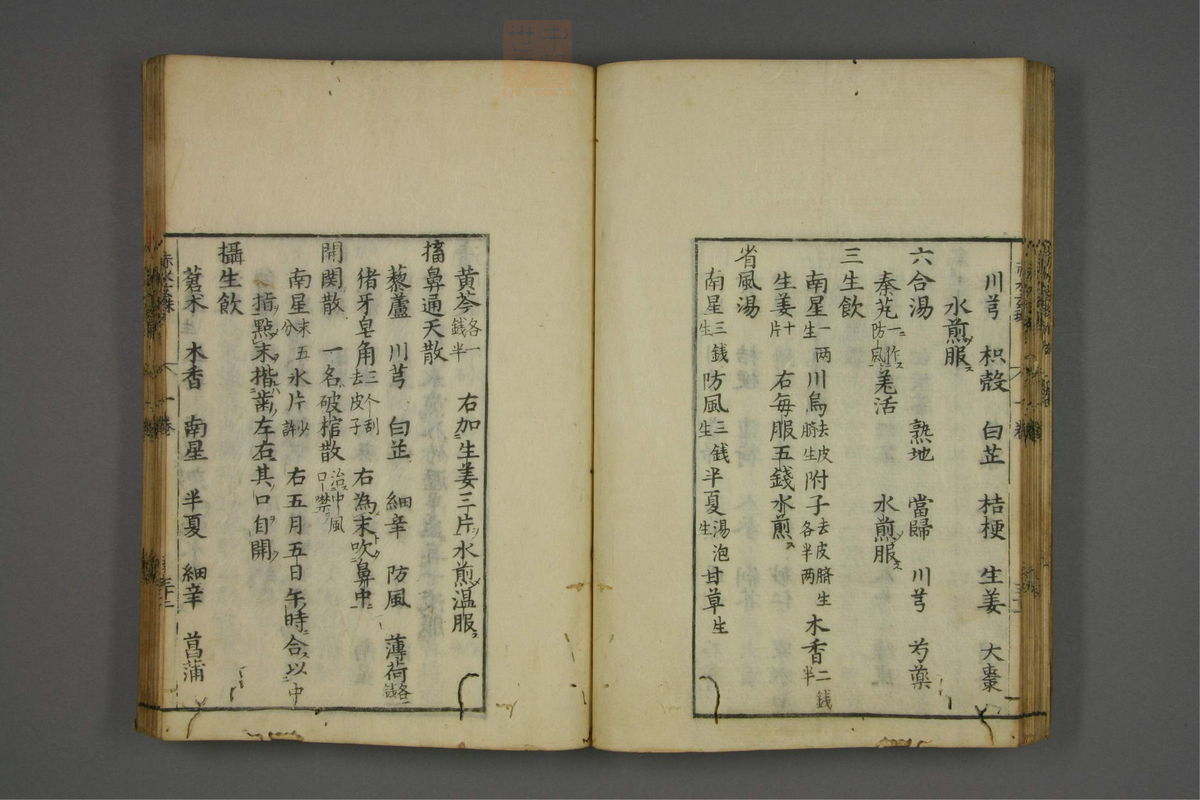 川芎 枳殼 白芷 桔梗 生姜 大棗
水煎服ス
六合湯 熟地 當歸 川芎 芍藥
秦艽一作防風ニ 羌活 水煎服ス
三生飲
南星一兩生 川烏去皮臍生 附子去皮臍生各半兩 木香二錢半
生姜十片 右每服五錢水煎ス
省風湯
南星三錢生 防風三錢生 半夏湯泡生 甘草生
黃芩各一錢半 右加生姜三片水煎温服ス
搐鼻通天散
藜蘆 川芎 白芷 細辛 防風 薄荷各一錢
猪牙皂角三个刮去皮子 右為末吹鼻中ニ
開関散 一名破棺散治中風口噤
南星末五分 氷片少許 右五月五日午時合以中
指點末揩齒左右其口自開
攝生飲
蒼朮 木香 南星 半夏 細辛 菖蒲
赤水玄珠 一卷